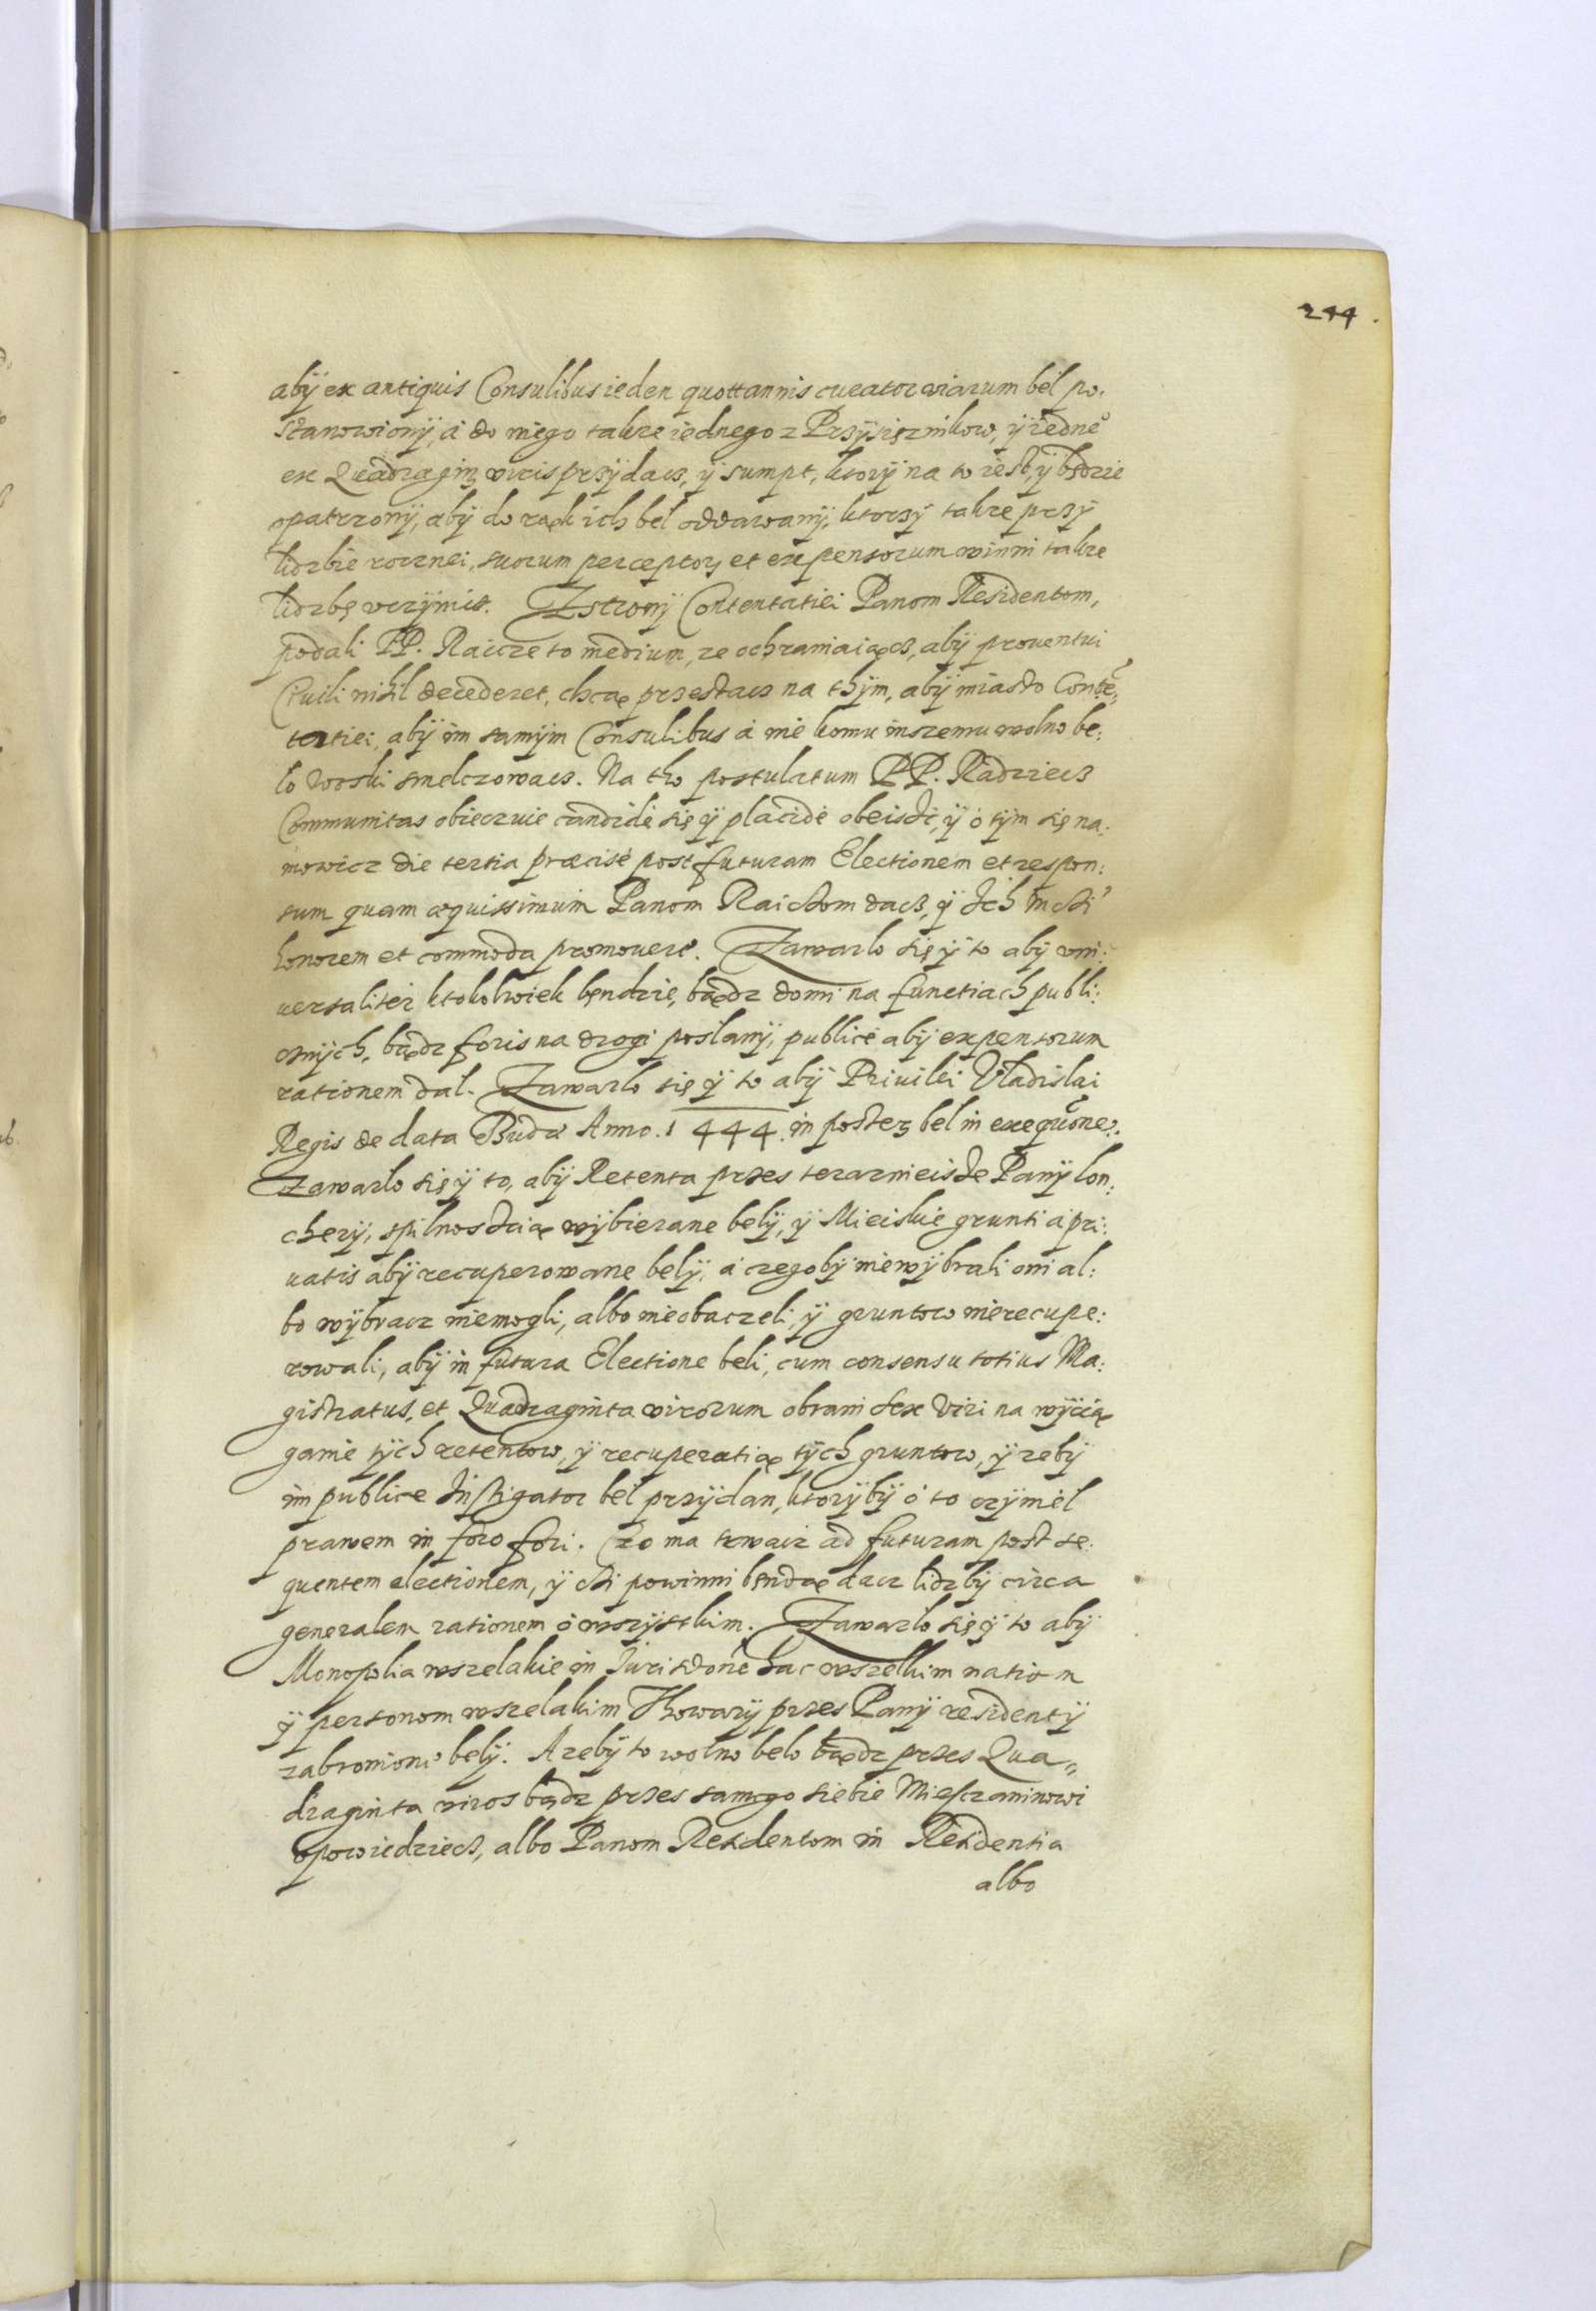 244.
abÿ ex antiquis Consulibus ieden quottannis curator viarum bel po.
stanowionÿ, á do niego takze iednego z Przÿsięznikow, ÿ iedne°
ex Quadragin. viris przÿdacz, ÿ sumpt, ktorÿ na to iest, ÿ będzie
opatrzonÿ, abÿ do rąk ich bel oddawanÿ, ktorzÿ takze przÿ
lidzbie rocznei, suorum perceptor. et expensorum winni takze
lidzbę vczÿnic. Zstronÿ Contentatiei Panom Residentom,
podali PP. Raicze to medium, ze ochraniaiącz, abÿ prouentui
Ciuili nihil decederet, chcą przestacz na thÿm, abÿ miasto Contē:
tatiei, abÿ im samÿm Consulibus á nie komu inszemu wolno be:
lo woski smelczowacz. Na tho postulatum PP. Radziecz
Communitas obieczuie candidè się ÿ placidè obeisdź, ÿ o tÿm się na:
mowicz die tertia præcisè post futuram Electionem et respon:
sum quam æquissimum Panom Raicdom dacz, ÿ Ich mcdi
honorem et commoda promouere. Zawarlo się ÿ to abÿ vni:
uersaliter ktokolwiek będzie, bądz domi na functiach publi:
cznÿch, bądz foris na drogi poslanÿ, publicè abÿ expensorum
rationem dal. Zawarlo się ÿ to abÿ Priuilei Vladislai
Regis de data Budæ Anno. 1444. in poster. bel in exequōne.
Zawarlo się ÿ to, abÿ Retenta przes teraznieisde Panÿ lon:
cherÿ, spilnosdcią wÿbierane belÿ, ÿ Mieiskie grunti á pri:
uatis abÿ recuperowane belÿ, á czegobÿ niewÿbrali oni al:
bo wÿbracz niemogli, albo nieobaczeli, ÿ gruntow nierecupe:
rowali, abÿ in futura Electione beli, cum consensu totius Ma:
gistratus, et Quadraginta virorum obrani sex Viri na wÿcią
ganie tÿch retentow, ÿ recuperatią tÿch gruntow, ÿ zebÿ
im publice Instigator bel przÿdan, ktorÿbÿ o to czÿniel
prawem in foro fori. Czo ma trwacz ad futuram post se:
quentem electionem, ÿ cdi powinni będą dacz lidzbÿ circa
generalem rationem o wszÿstkim. Zawarlo się ÿ to abÿ
Monopolia wszelakie in Jurisdōne hac wszelkim nation
ÿ personom wszelakim Thowarÿ przes Panÿ residentÿ
zabronionè belÿ. A zebÿ to wolno belo bądz przes Qua,,
draginta viros bądz przes samego siebie Miesczaninowi
opowiedziecz, albo Panom Residentom in Residentia
albo